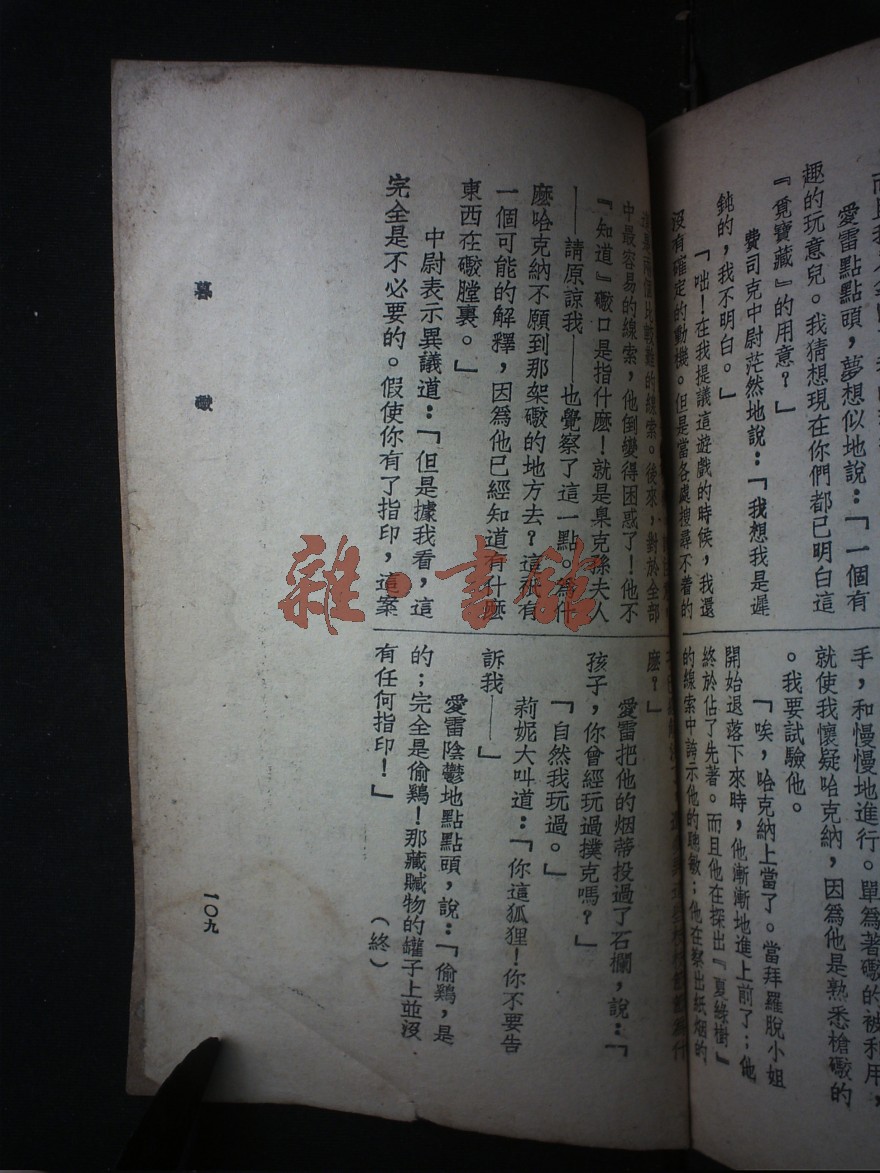 愛雷點點頭,夢想似地說:「一個有
趣的玩意兒。我猜想現在你們都已明白這
『覓寶藏』的用意?」
費司克中尉茫然地說:「我想我是遲
鈍的,我不明白。」
「咄!在我提議這遊戲的時候,我還
沒有確定的動機。但是當各處搜尋不着的
手,和慢慢地進行。單爲著礮的被利用,
就使我懷疑哈克納,因爲他是熟悉槍礮的
。我要試驗他。
「唉,哈克納上當了。當拜羅脫小姐
開始退落下來時,他漸漸地進上前了;他
終於佔了先著。而且他在探出『夏綠樹』
的線索中誇示他的聰敏;他在察出紙烟的
是兩個比較難的線索。後來,對於全部
中最容易的線索,他倒變得困惑了!他不
『知道』礮口是指什麽!就是臬克絲夫人
——請原諒我——也覺察了這一點。爲什
麽哈克納不願到那架礮的地方去?這祇有
一個可能的解釋,因爲他已經知道有什麽
東西在礮膛裏。」
中尉表示異議道:「但是據我看,這
完全是不必要的。假使你有了指印,這案
麽?」
愛雷把他的烟蒂投過了石欄,說:「
孩子,你曾經玩過撲克嗎?」
「自然我玩過。」
莉妮大叫道:「你這狐狸!你不要告
訴我——」
愛雷陰鬱地點點頭,說:「偷鷄,是
的;完全是偷鷄!那藏贓物的罐子上並沒
有任何指印!」
(終)
暮礮
一〇九
雜·書館